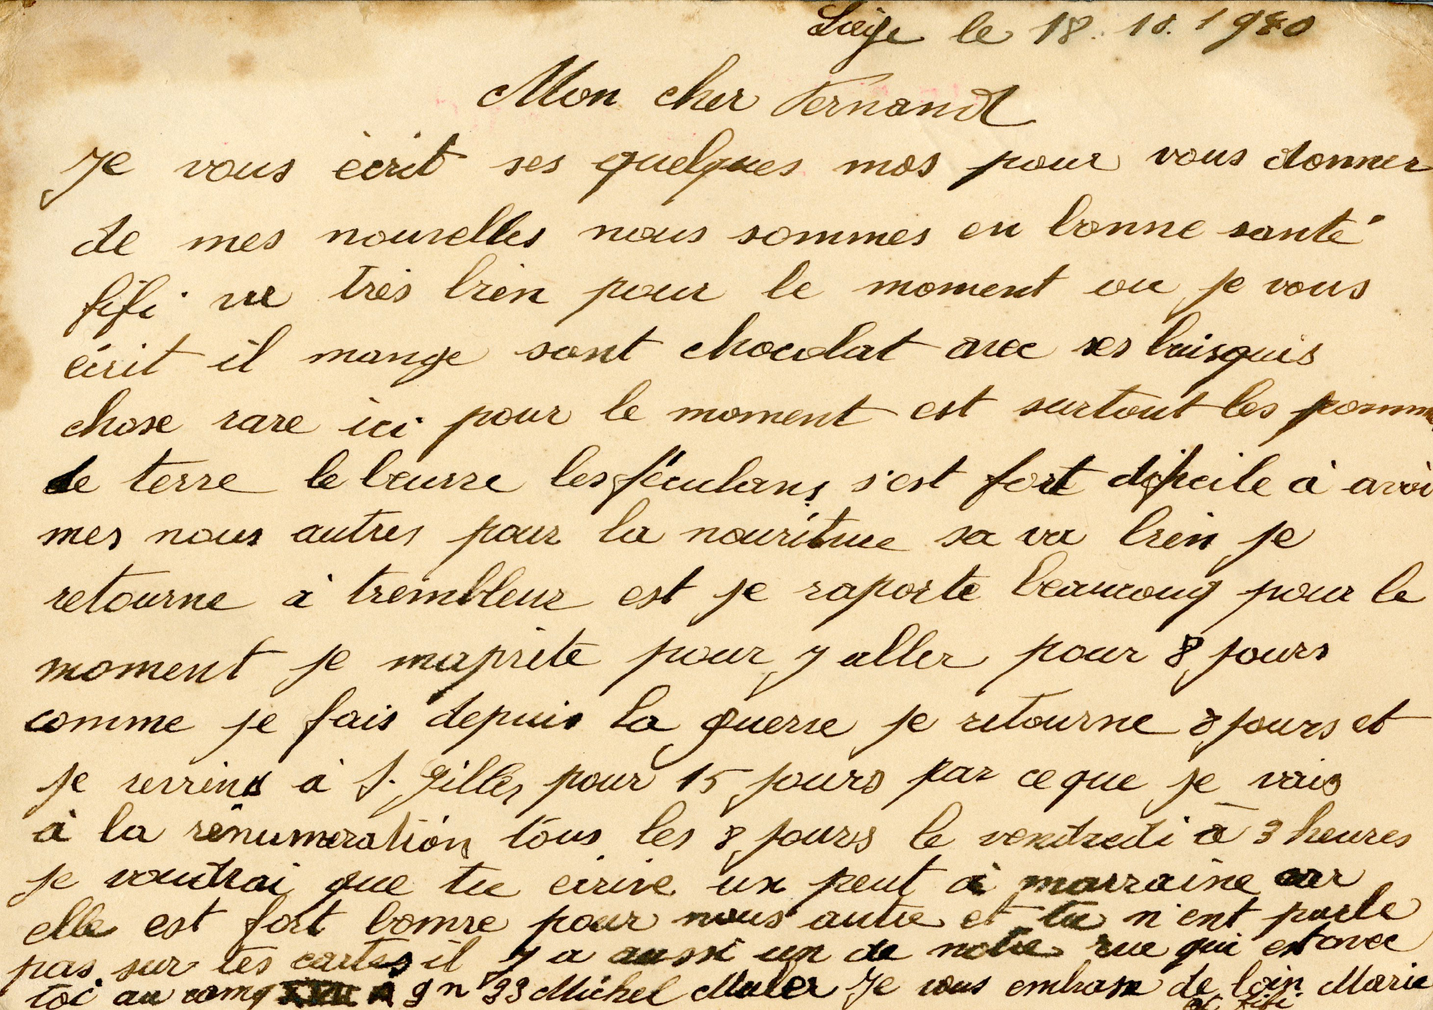 Liège le 18. 10. 1940
Mon cher Fernand
Je vous écrit ses quelques mos pour vous donner
de mes nouvelles nous sommes en bonne santé
fifi va très bien pour le moment ou je vous
écrit il mange sont chocolat avec ses buisquis
chose rare ici pour le moment est surtout les pomme
de terre le beurre les féculans s'est fort dificile à avoi
mes nous autres pour la nouritue sa va bien je
retourne à trembleur est je raporte beaucoup pour le
moment je maprête pour y aller pour 8 jours
comme je fais depuis la guerre je retourne 8 jours et
je reviens à S. Gilles pour 15 jours par ce que je vais
à la rénumération tous les 8 jours le vendredi à 3 heures
je voudrai que tu écrive un peut à marraine car
elle est fort bonne pour nous autre et tu n'ent parle
pas sur tes cartes il y a aussi un de notre rue qui est avec
toi au camp 9 n° 33 Michel Muler Je vous embrase de loin Marie
et fifi